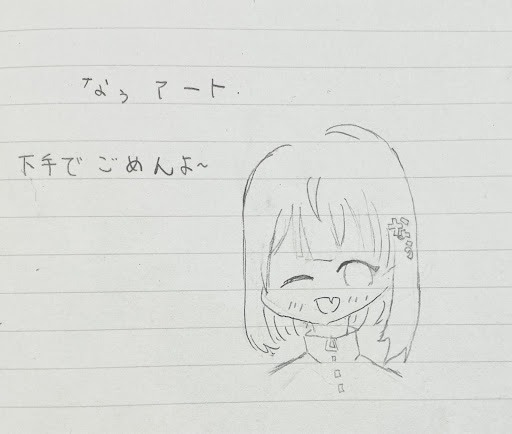 なぅ アート.
下手で ごめんよ~